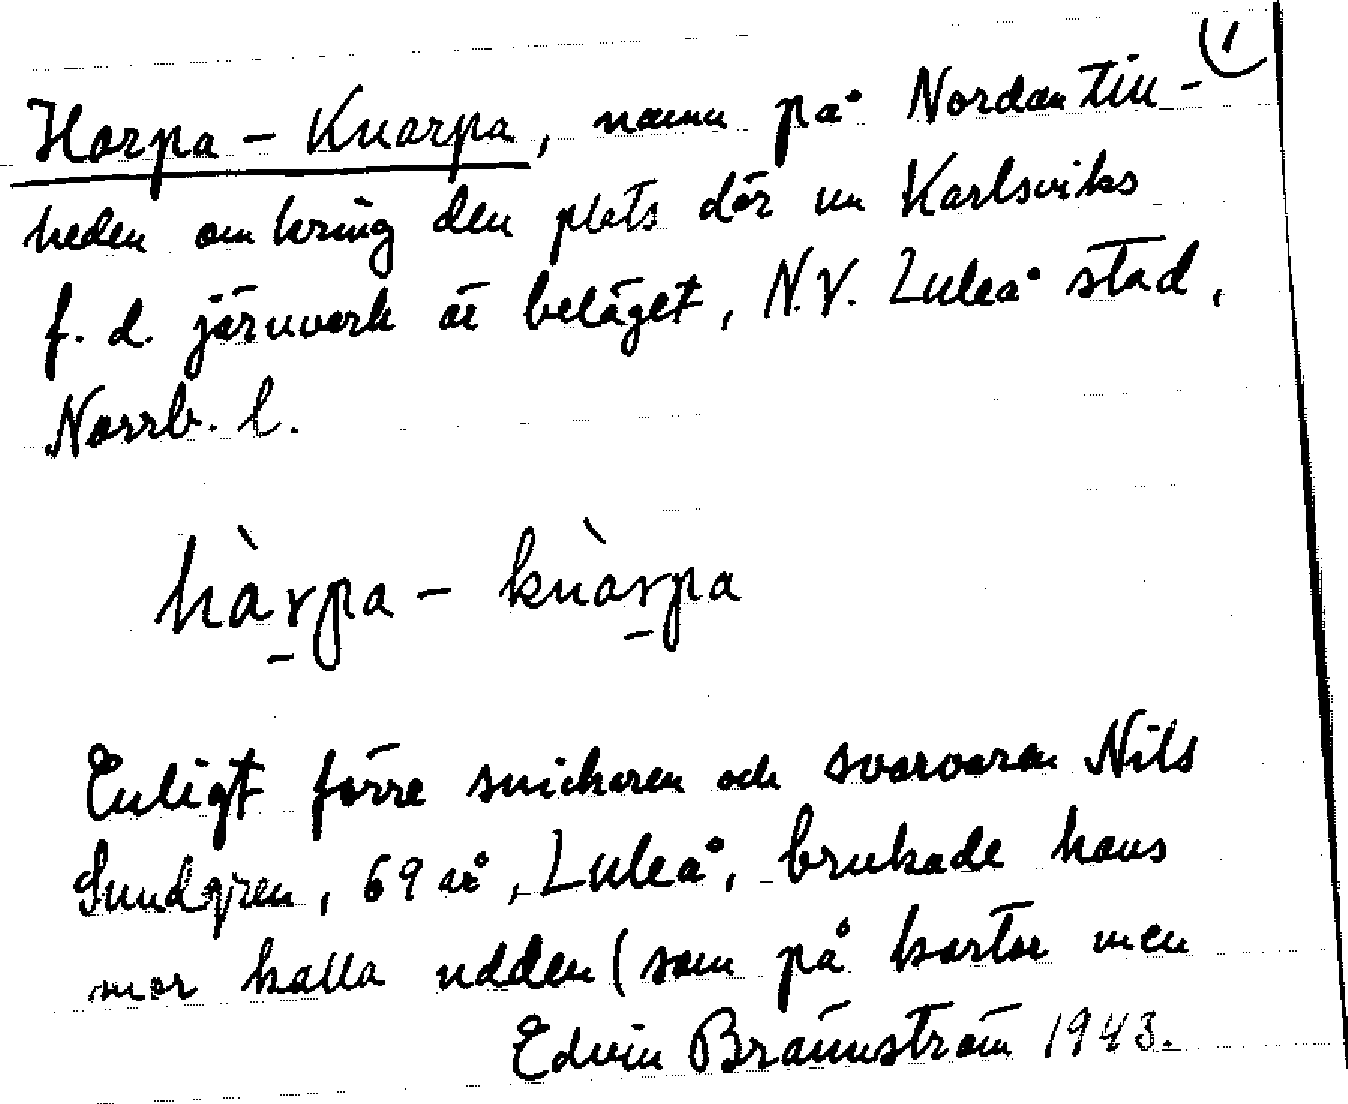 1
Harpa - Knarpa, namn på Nordantill-
heden omkring den plats där nu Karlsviks
f. d. järnverk är beläget, N.V. Luleå stad,
Norrb. l.
hàrpa - knàrpa
Enligt förre snickaren och svarvaren Nils
Sundgren, 69 år, Luleå, brukade hans
mor kalla udden (som på kartor men
Edvin Brännström 1943.